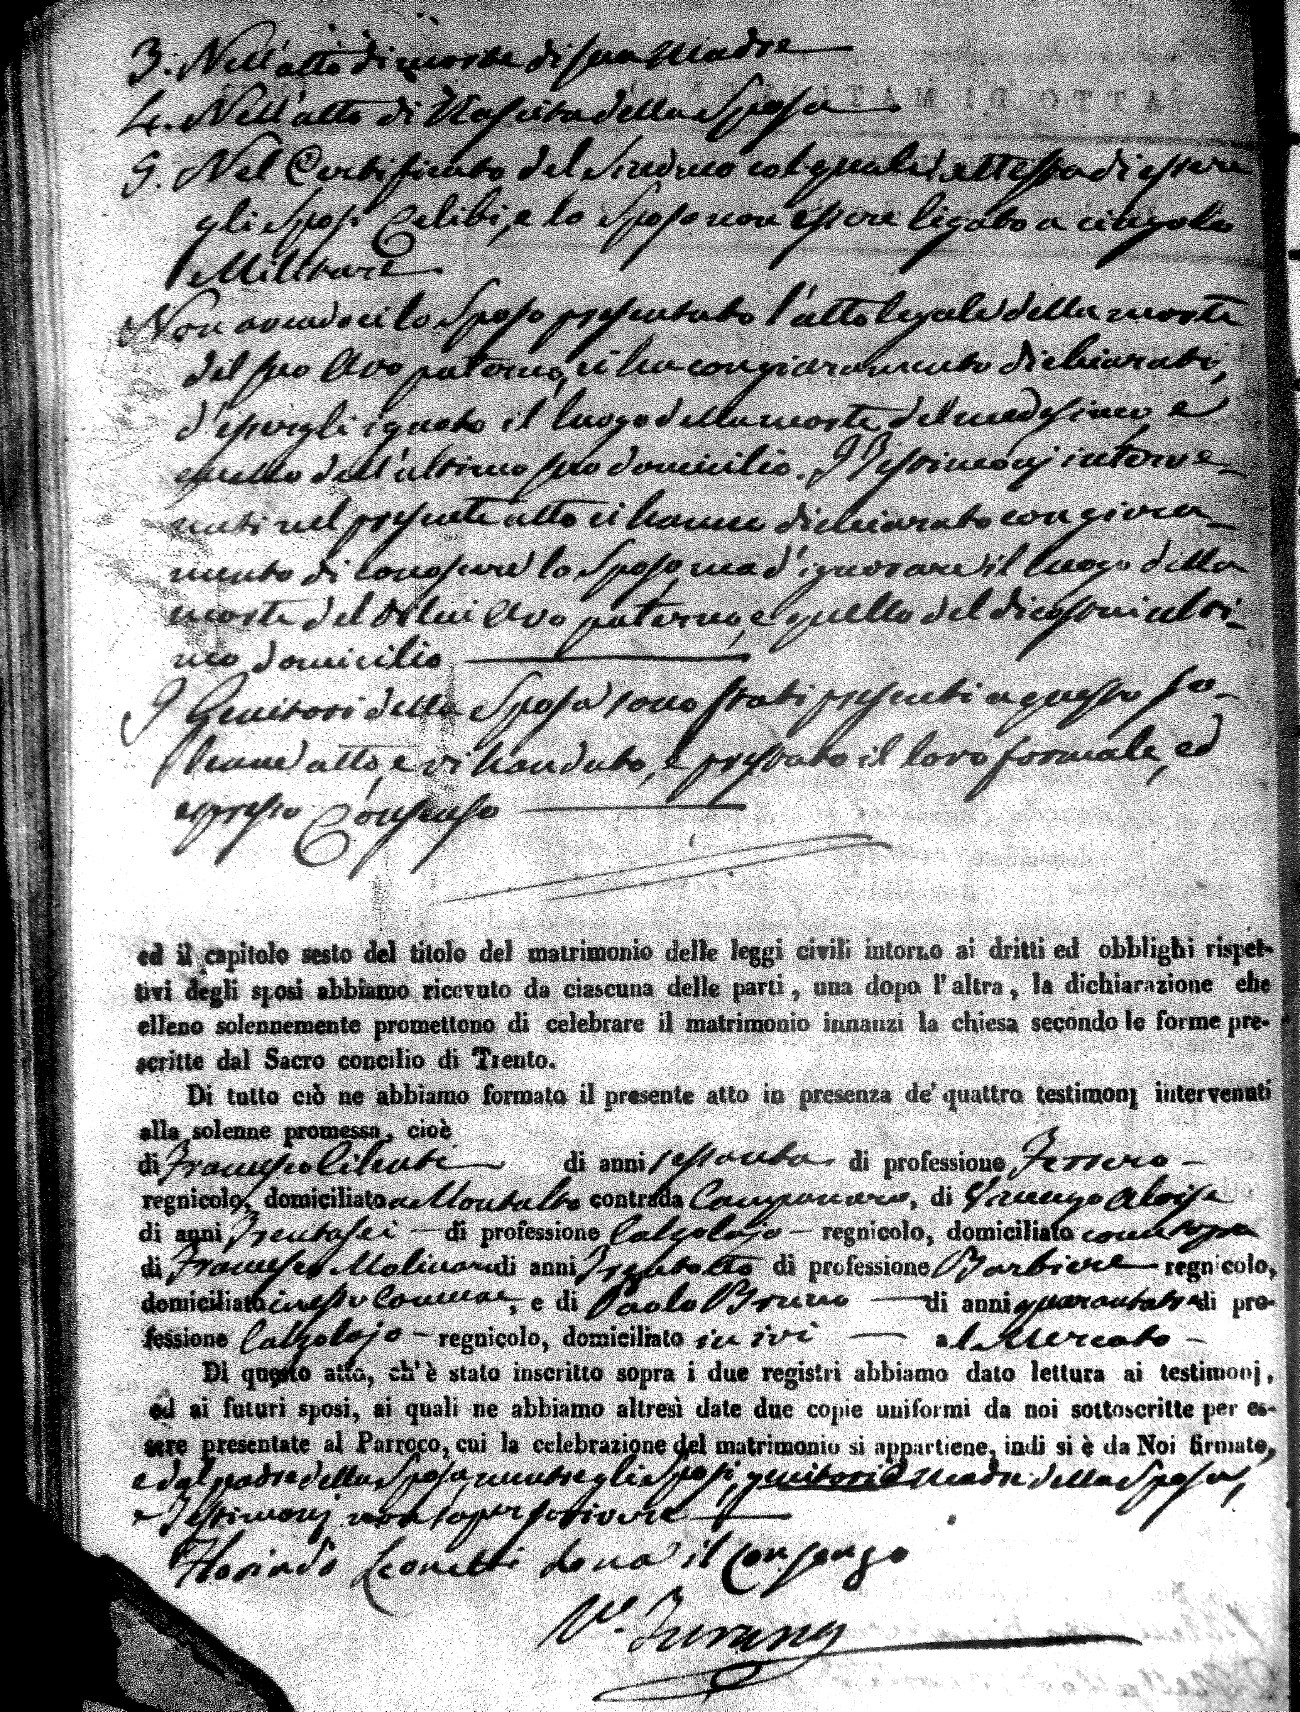 3. Nell'atto di morte di sua Madre
4. Nell'atto di Nascita della Sposa
5. Nel Certificato del Sindaco col quale si attesta di essere
gli Sposi Celibi, e lo Sposo non essere ligato a cingolo
Militare
Non avendoci lo Sposo presentato l'atto legale della morte
del suo Avo paterno, ci ha con giuramento dichiarato,
d'essergli ignoto il luogo della morte del medesimo, e
quello dell'ultimo suo domicilio. I Testimonj interve-
nuti nel presente atto ci hanno dichiarato con giura-
mento di conoscere lo Sposo, ma d'ignorare il luogo della
morte del di lui Avo paterno, e quello del di costui ulti-
mo domicilio
I Genitori della Sposa sono stati presenti a questo so-
lenne atto, e vi han dato, e prestato il loro formale, ed
espresso Consenso
ed il capitolo sesto del titolo del matrimonio delle leggi civili intorno ai dritti ed obblighi rispet-
tivi degli sposi abbiamo ricevuto da ciascuna delle parti, una dopo l'altra, la dichiarazione che
elleno solennemente promettono di celebrare il matrimonio innanzi la chiesa secondo le forme pre-
scritte dal Sacro concilio di Trento.
Di tutto ciò ne abbiamo formato il presente atto in presenza de' quattro testimonj intervenuti
alla solenne promessa, cioè
di Francesco di anni sessanta di professione Ferraro
regnicolo, domiciliato a Montalto contrada Campanaro, di Aloise
di anni Trentasei di professione Calzolajo regnicolo, domiciliato come sopra
di Francesco Molinaro di anni Trentotto di professione Barbiere regnicolo,
domiciliato in esso Comune, e di Paolo Bruno di anni quarantatre di pro-
fessione Calzolajo regnicolo, domiciliato in ivi al Mercato
Di questo atto, ch'è stato inscritto sopra i due registri abbiamo dato lettura ai testimonj,
ed ai futuri sposi, ai quali ne abbiamo altresì date due copie uniformi da noi sottoscritte per es-
sere presentate al Parroco, cui la celebrazione del matrimonio si appartiene, indi si è da Noi firmato,
e dal padre della Sposa, mentre gli Sposi, genitori e Madre della Sposa,
e Testimonj non saper scrivere
Florindo Leonetti dona il Consenzo